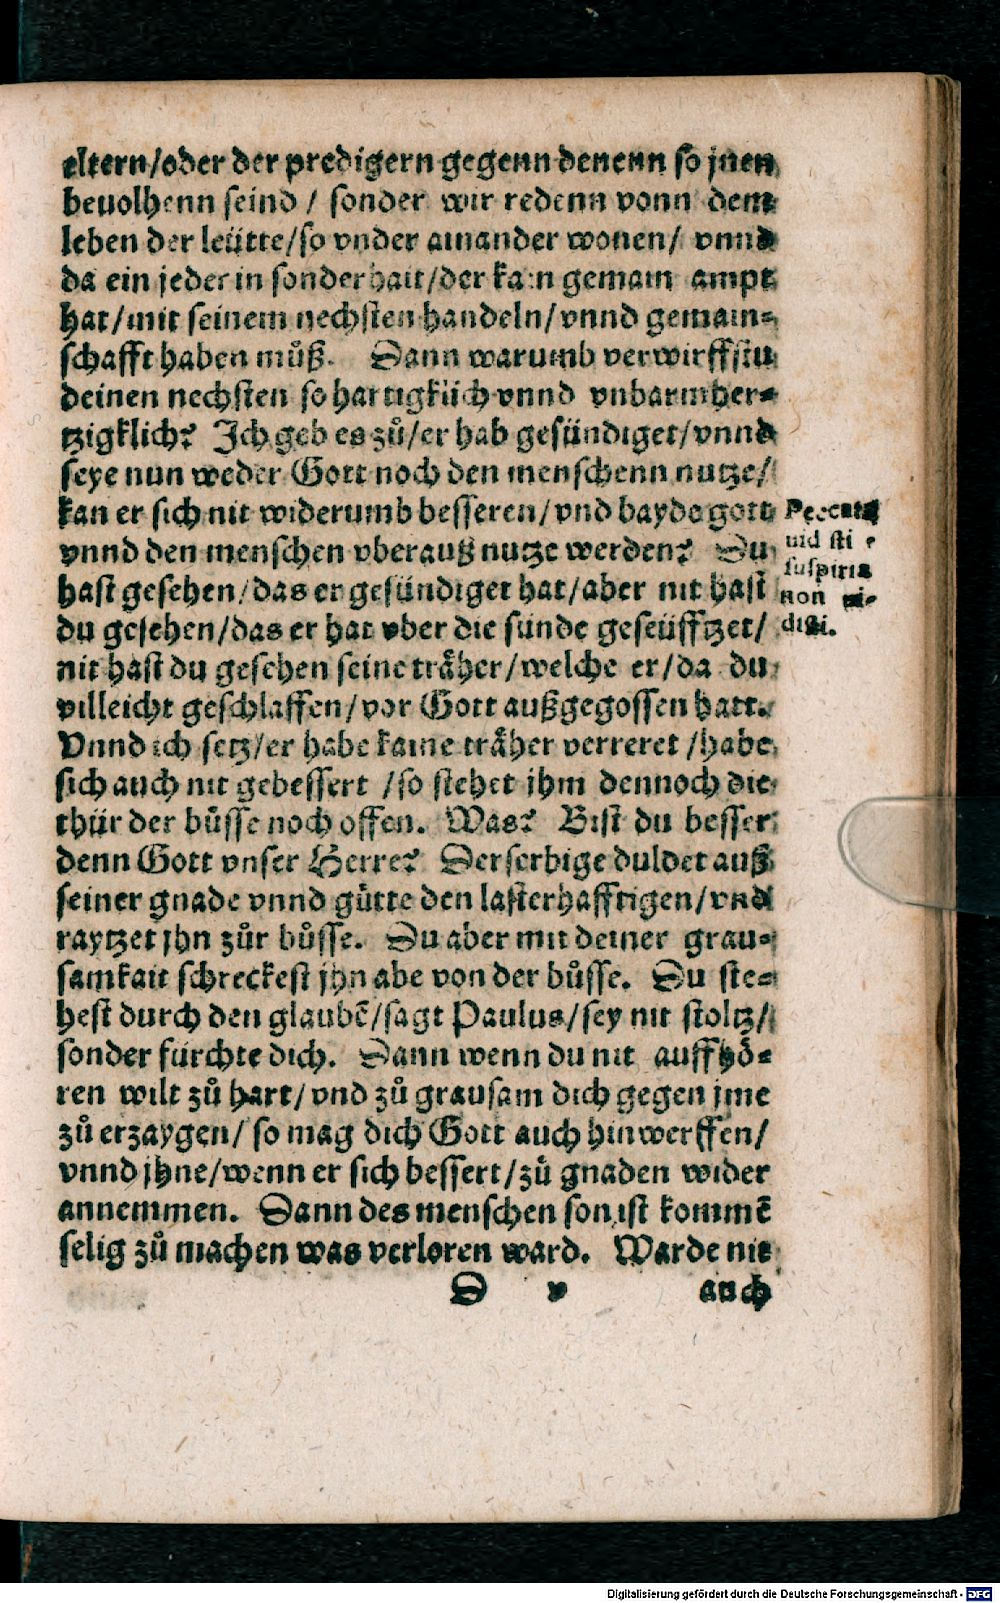 eltern/oder der predigern gegenn denenn so jnen
beuolhenn seind / sonder wir redenn vonn dem
leben der leütte/so vnder ainander wonen/ vnnd
da ein jeder in sonderhait/der kain gemain ampt
hat/mit seinem nechsten handeln/vnnd gemain-
schafft haben můß. Dann warumb verwirffstu
deinen nechsten so hartigklich vnnd vnbarmher-
tzigklich? Ich geb es zů/er hab gesündiget/vnnd
seye nun weder Gott noch den menschenn nutze/
kan er sich nit widerumb besseren/vnd bayde gott
vnnd den menschen vberauß nutze werden? Du
hast gesehen/das er gesündiget hat/aber nit hast
du gesehen/das er hat vber die sünde geseüfftzet/
nit hast du gesehen seine träher/welche er/da du
villeicht geschlaffen/vor Gott außgegossen hatt.
Vnnd ich setz/er habe kaine träher verreret /habe
sich auch nit gebessert /so stehet jhm dennoch die
thür der bůsse noch offen. Was? Bist du besser
denn Gott vnser Herre? Derselbige duldet auß
seiner gnade vnnd gütte den lasterhafftigen/vnd
raytzet jhn zůr bůsse. Du aber mit deiner grau-
samkait schreckest jhn abe von der bůsse. Du ste-
hest durch den glaubē/sagt Paulus/sey nit stoltz/
sonder fürchte dich. Dann wenn du nit auffhö-
ren wilt zů hart/vnd zů grausam dich gegen jme
zů erzaygen/ so mag dich Gott auch hinwerffen/
vnnd jhne/wenn er sich bessert/zů gnaden wider
annemmen. Dann des menschen son ist kommē
selig zů machen was verloren ward. Warde nit
D v auch
Peccata
uidisti
suspiria
non ui-
disti.
Digitalisierung gefördert durch die Deutsche Forschungsgemeinschaft - DFG